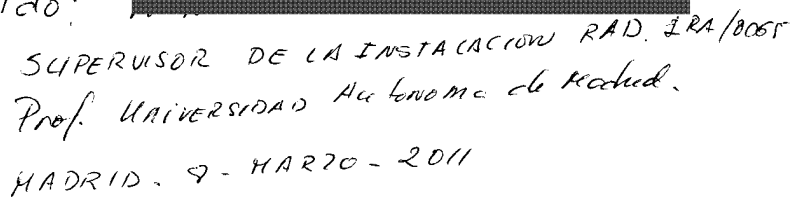 SUPERVISOR DE LA INSTALACCION RAD. IRA/8065
Prof. UNIVERSIDAD Autonoma de Madrid.
MADRID. 8 - MARZO - 2011